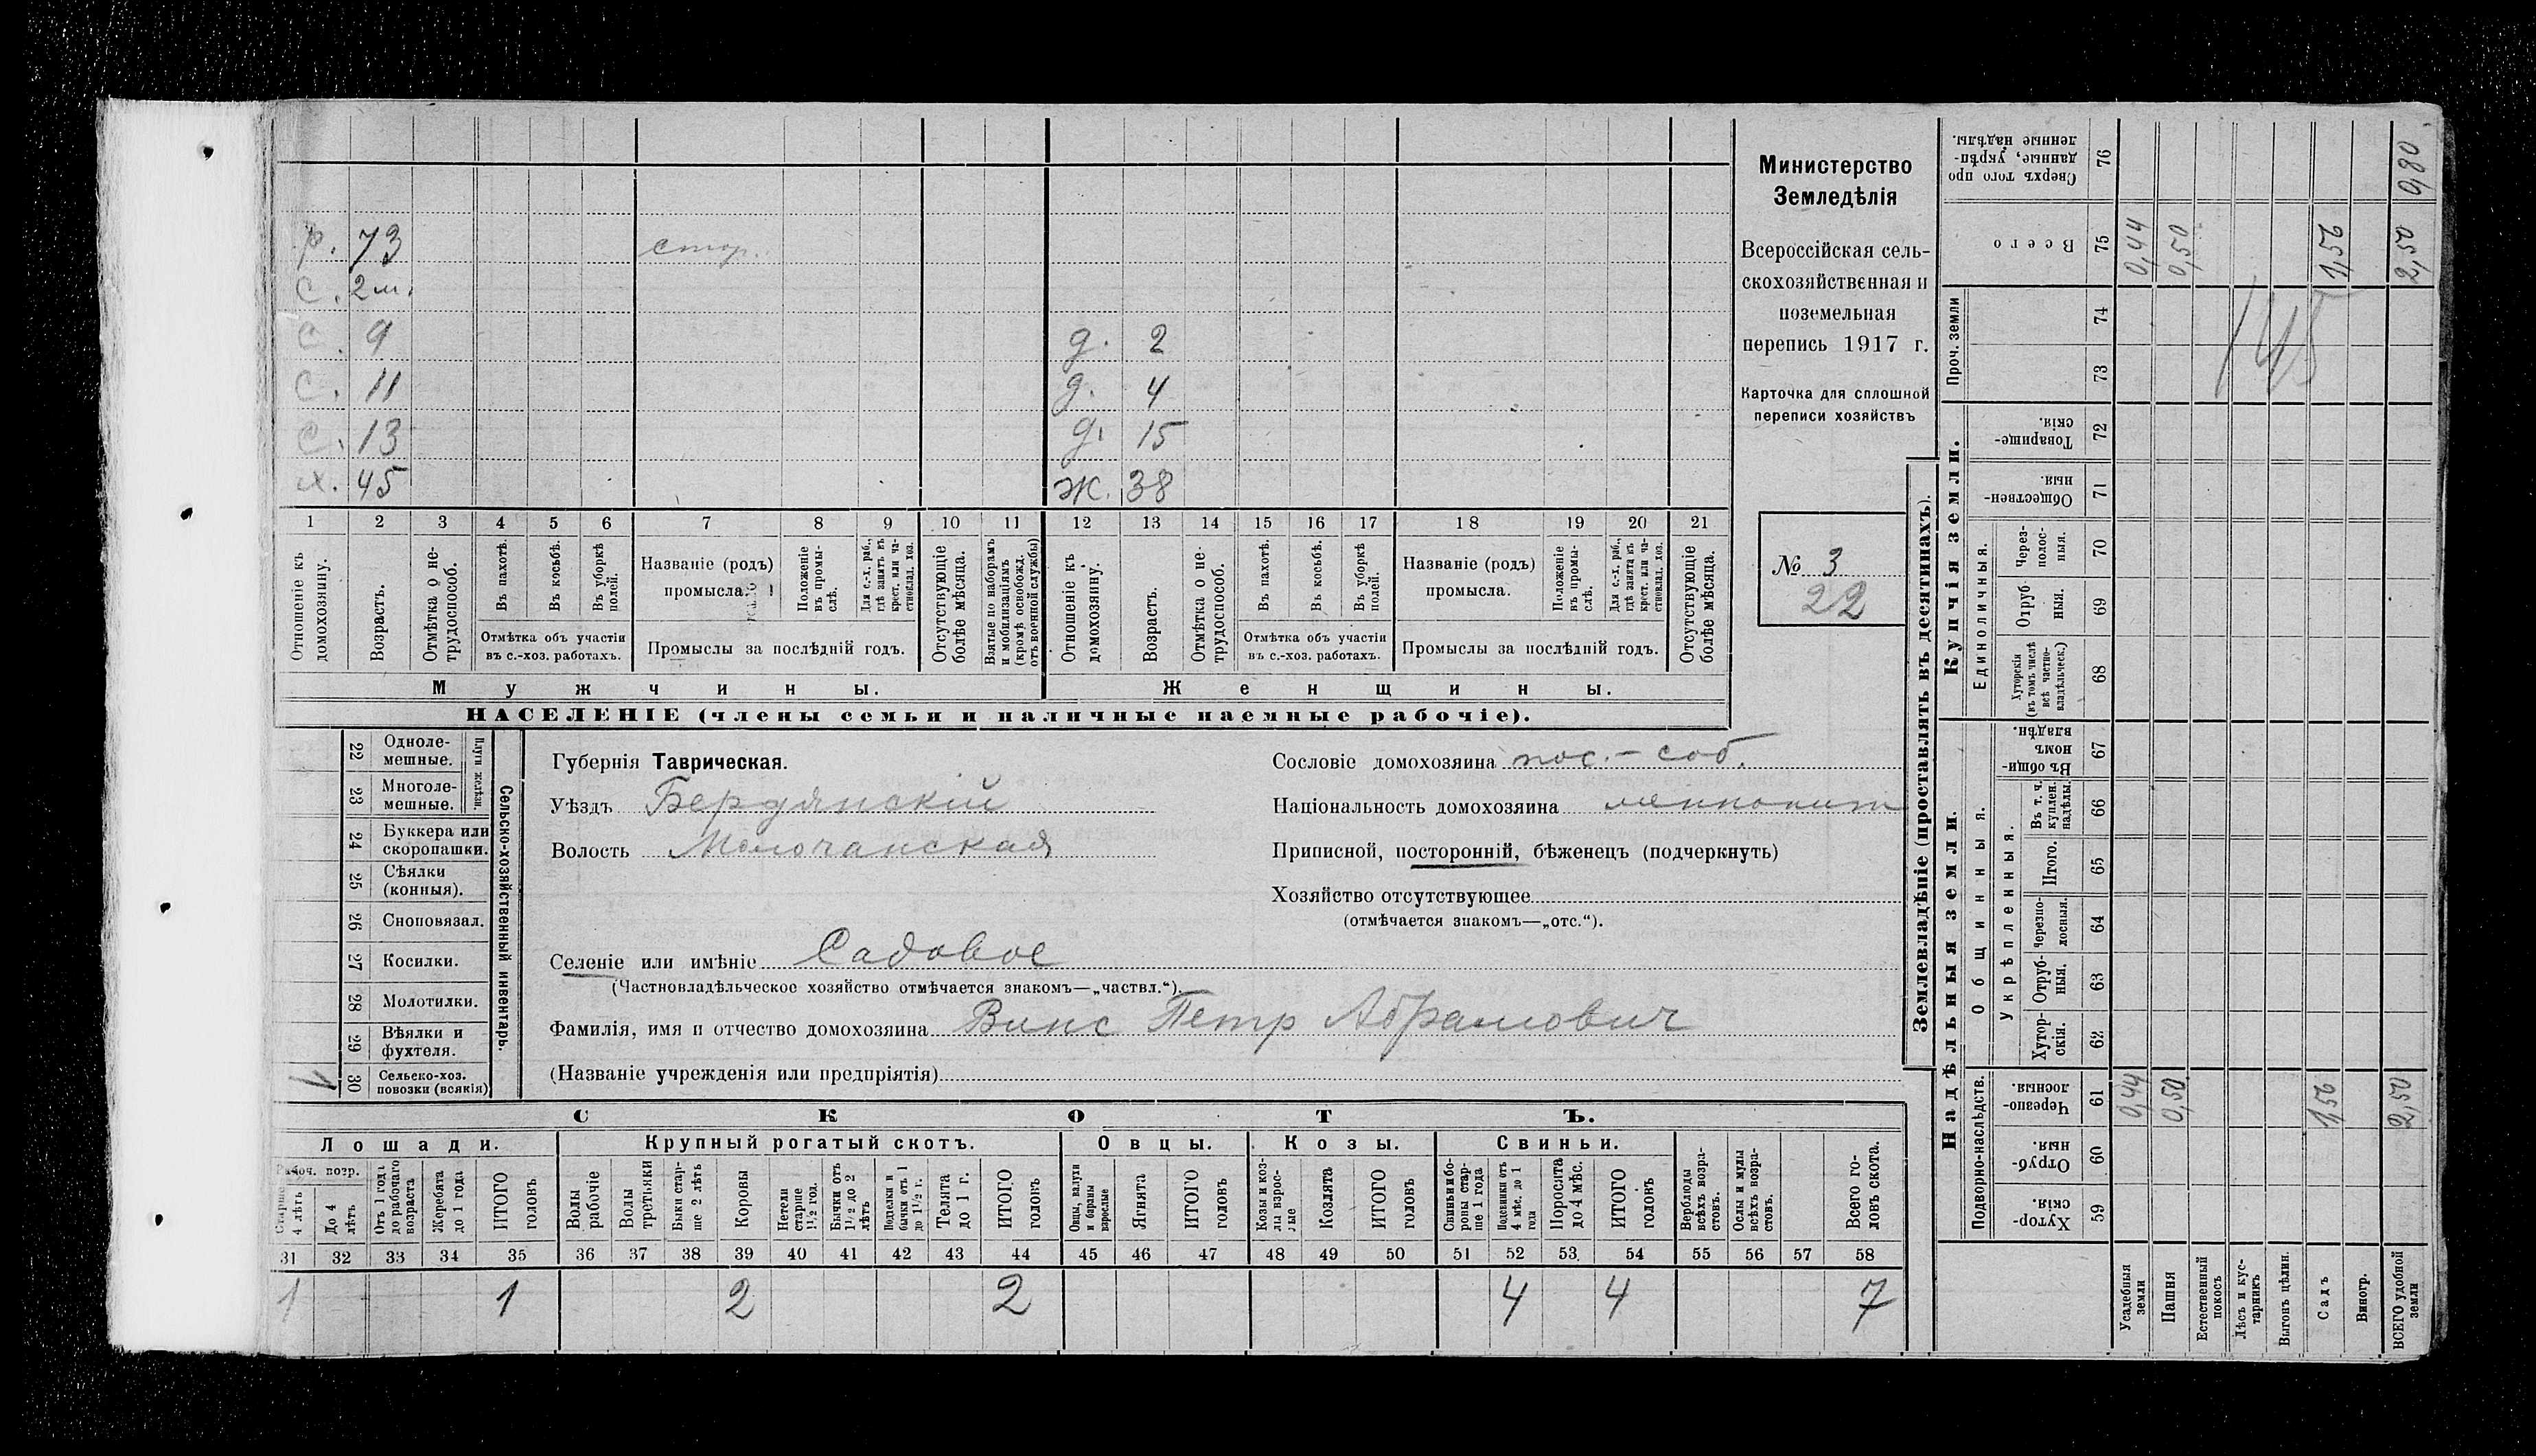 Министерство
Земледѣлія
Всероссійская сель-
скохозяйственная и
поземельная
перепись 1917 г.
Карточка для сплошной
переписи хозяйствъ
№ 3
22
р. 73 стор.
с. 2 м.
с. 9 д. 2
с. 11 д. 4
с. 13 д. 15
х. 45 ж. 38
1 2 3 4 5 6 7 8 9 10 11 12 13 14 15 16 17 18 19 20 21
Отношеніе къ домохозяину.
Возрастъ.
Отмѣтка о не-трудоспособ.
Въ пахотѣ.
Въ косьбѣ.
Въ уборкѣ полей.
Отмѣтка объ участіи
въ с.-хоз. работахъ.
Названіе (родъ)
промысла.
Положеніе въ промы-слѣ.
Для с.-х. раб., гдѣ занятъ въ крест. или ча-стновлад. хоз.
Промыслы за послѣдній годъ.
Отсутствующіе болѣе мѣсяца.
Взятые по наборамъ и мобилизаціямъ (кромѣ освобожд. отъ военной службы)
Отношеніе къ домохозяину.
Возрастъ.
Отмѣтка о не-трудоспособ.
Въ пахотѣ.
Въ косьбѣ.
Въ уборкѣ полей.
Отмѣтка объ участіи
въ с.-хоз. работахъ.
Названіе (родъ)
промысла.
Положеніе въ промы-слѣ.
Для с.-х. раб., гдѣ занята въ крест. или ча-стновлад. хоз.
Промыслы за послѣдній годъ.
Отсутствующіе болѣе мѣсяца.
Мужчины. Женщины.
НАСЕЛЕНІЕ (члены семьи и наличные наемные рабочіе).
Сельско-хозяйственный инвентарь.
Плуги желѣзн.
22 Одноле-мешные.
23 Многоле-мешные.
24 Буккера или скоропашки.
25 Сѣялки (конныя).
26 Сноповязал.
27 Косилки.
28 Молотилки.
29 Вѣялки и фухтеля.
30 Сельско-хоз. повозки (всякія)
Губернія Таврическая.
Уѣздъ Бердянскій
Волость Молочанская
Сословіе домохозяина пос. - соб.
Національность домохозяина меннонит
Приписной, посторонній, бѣженецъ (подчеркнуть)
Хозяйство отсутствующее
(отмѣчается знакомъ—„отс.“).
Селеніе или имѣніе Садовое
(Частновладѣльческое хозяйство отмѣчается знакомъ—„частвл.“).
Фамилія, имя и отчество домохозяина Винс Петр Абрамович
(Названіе учрежденія или предпріятія)
СКОТЪ.
Лошади. Крупный рогатый скотъ. Овцы. Козы. Свиньи.
Рабоч. возр.
Старше 4 лѣтъ
До 4 лѣтъ
Отъ 1 года до рабочаго возраста
Жеребята до 1 года
ИТОГО головъ
Волы рабочіе
Волы третьяки
Быки стар-ше 2 лѣтъ
Коровы
Нетели старше 1½ год.
Бычки отъ 1½ до 2 лѣтъ
Подтелки и бычки отъ 1 до 1½ г.
Телята до 1 г.
ИТОГО головъ
Овцы, валухи и бараны взрослые
Ягнята
ИТОГО головъ
Козы и коз-лы взрос-лые
Козлята
ИТОГО головъ
Свиньи и бо-ровы стар-ше 1 года
Подсвинки отъ 4 мѣс. до 1 года
Поросята до 4 мѣс.
ИТОГО головъ
Верблюды всѣхъ возра-стовъ.
Ослы и мулы всѣхъ возра-стовъ.
Всего го-ловъ скота.
31 32 33 34 35 36 37 38 39 40 41 42 43 44 45 46 47 48 49 50 51 52 53 54 55 56 57 58
1 1 2 2 4 4 7
Землевладѣніе (проставлять въ десятинахъ).
Надѣльныя земли. Купчія земли. Проч. земли
Подворно-наслѣдств.
Общинныя.
Укрѣпленныя.
Единоличныя.
59 Хутор-скія.
60 Отруб-ныя.
61 Черезпо-лосныя.
62 Хутор-скія.
63 Отруб-ныя.
64 Черезпо-лосныя.
65 Итого.
66 Въ т. ч. куплен. надѣлы.
67 Въ общи-нномъ владѣн.
68 Хуторскія (въ томъ числѣ всѣ частно-владѣльческ.)
69 Отруб-ныя.
70 Через-полос-ныя.
71 Обществен-ныя.
72 Товарище-скія.
73
74
75 Всего
76 Сверхъ того про данные, укрѣп-ленные надѣлы.
145
Усадебныя земли 0,44 0,44
Пашня 0,50 0,50
Естественный покосъ
Лѣсъ и кус-тарникъ
Выгонъ цѣлин.
Садъ 1,56 1,56
Виногр.
ВСЕГО удобной земли 2,50 2,50 0,80